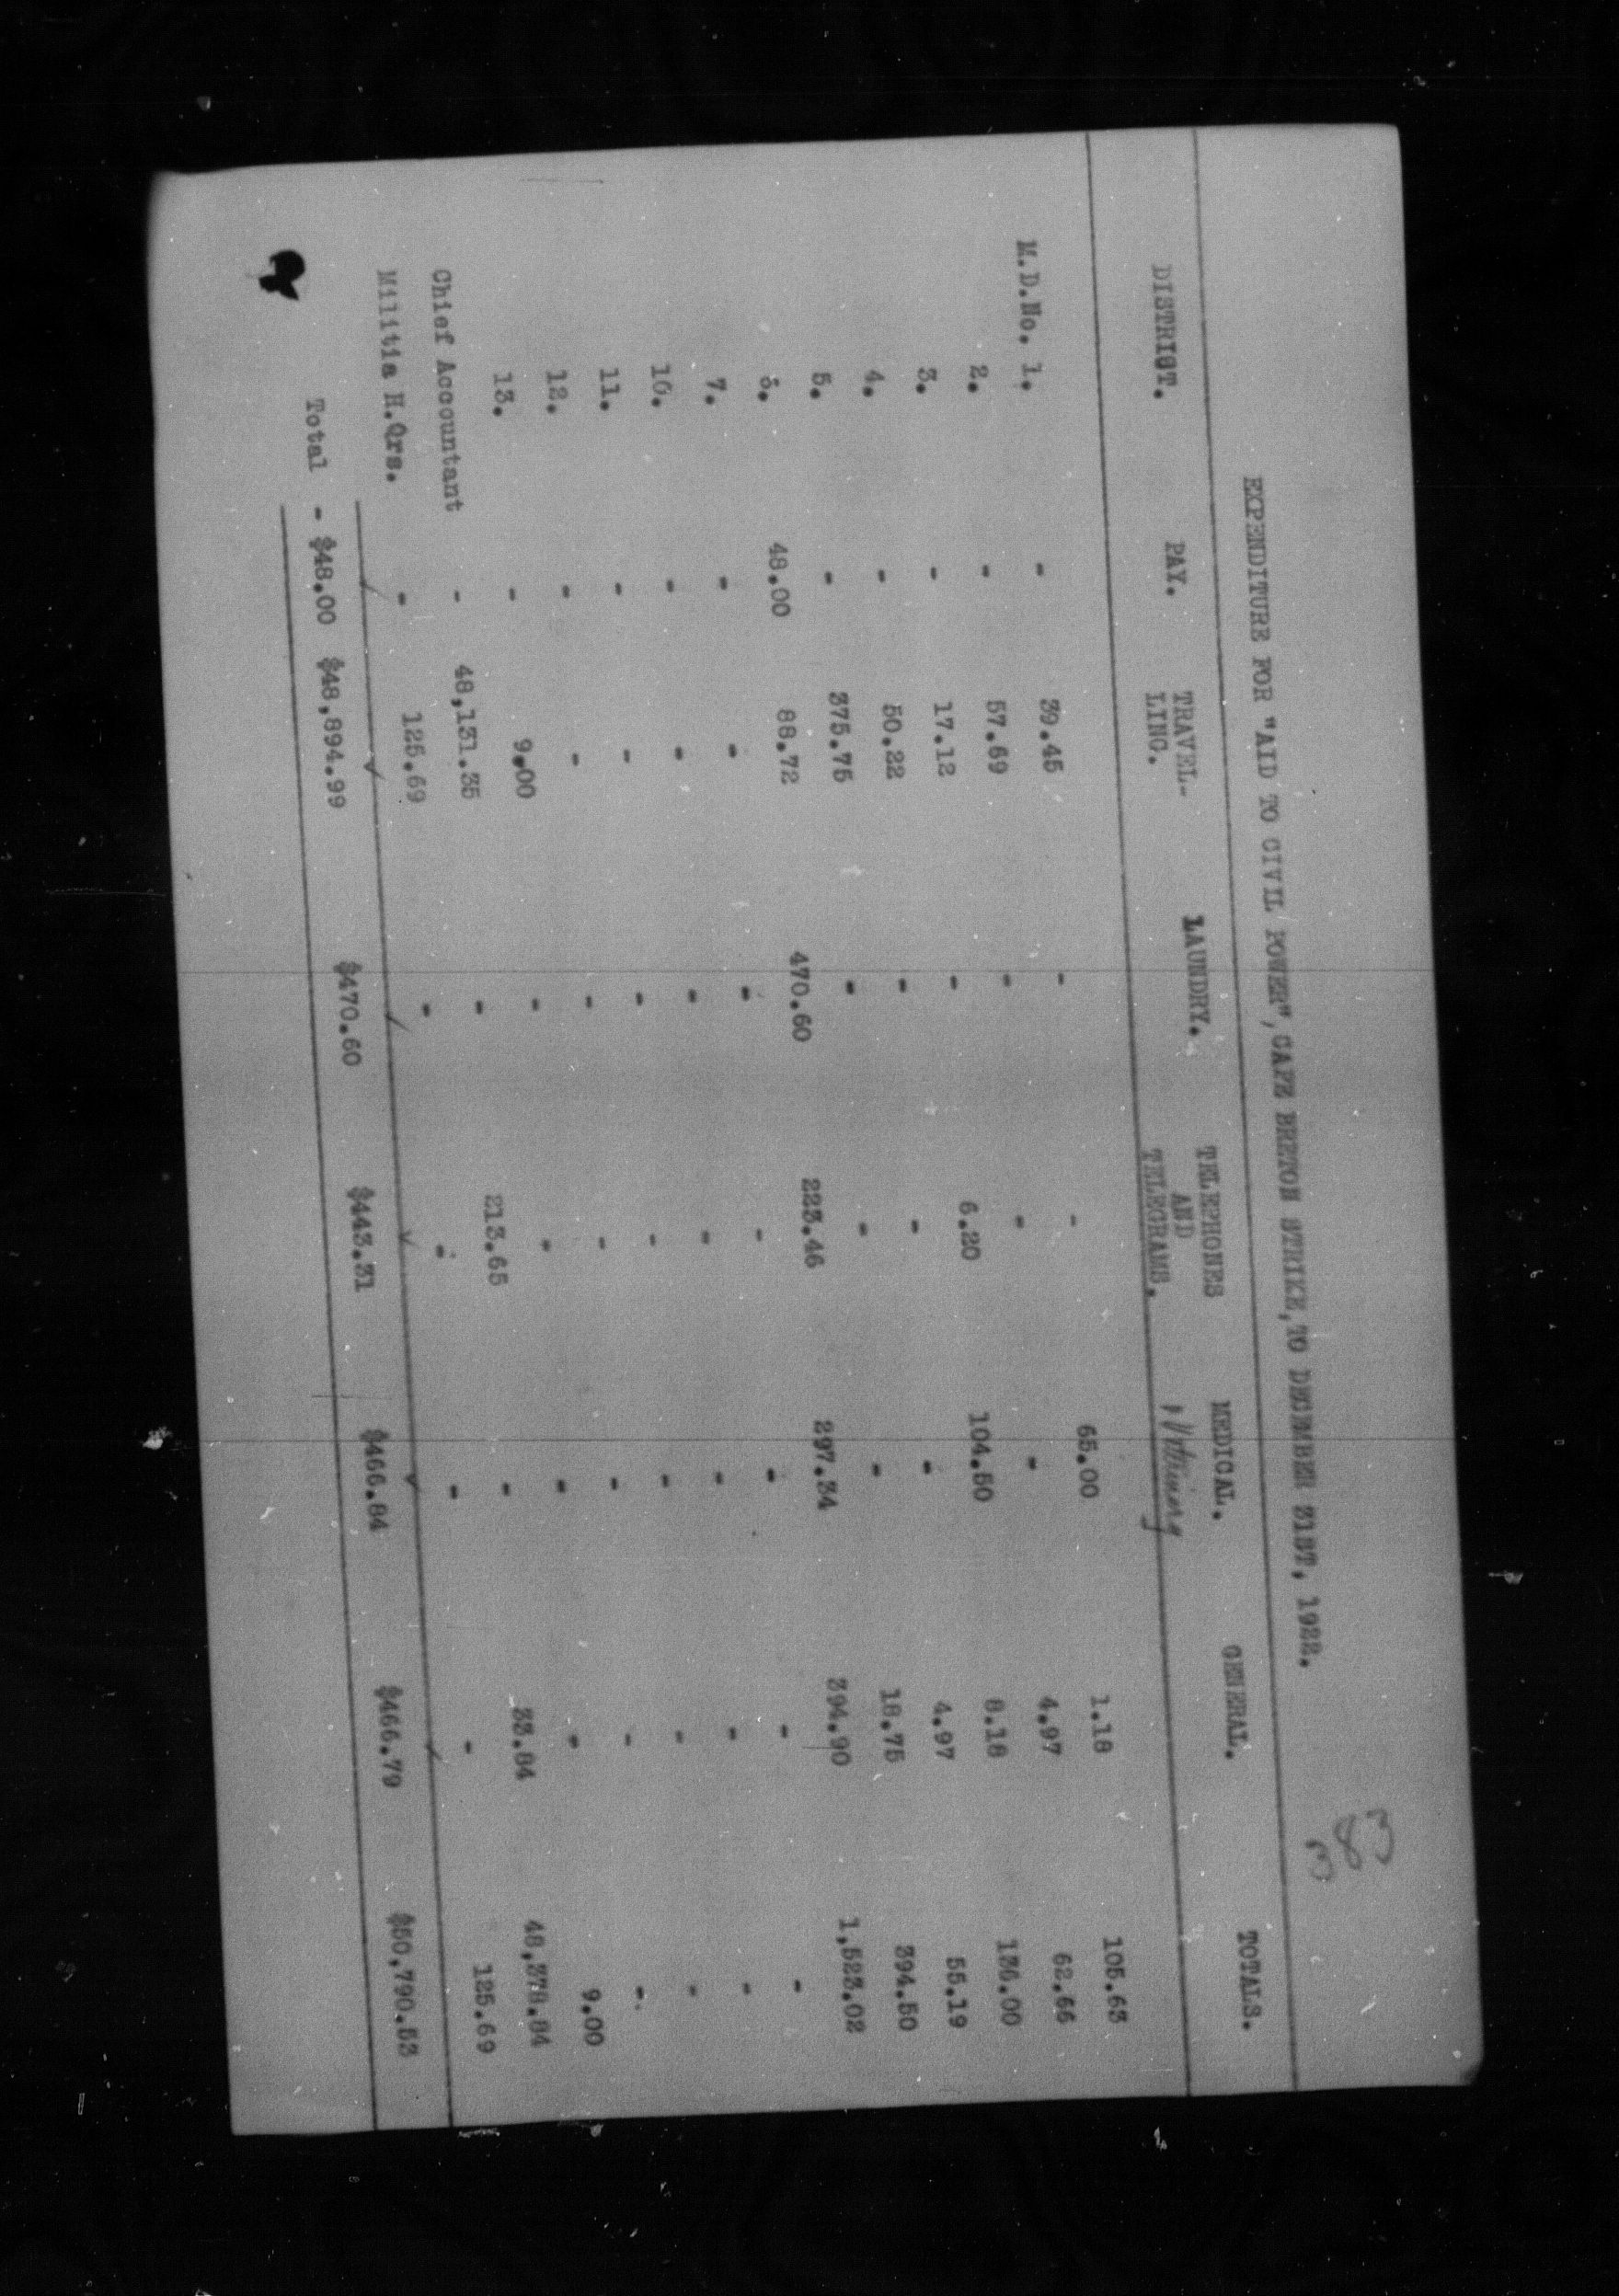 383
EXPENDITURE FOR "AID TO CIVIL POWER", CAPE BRETON STRIKE, TO DECEMBER 31ST, 1922.
DISTRICT. PAY. TRAVEL- LAUNDRY. TELEPHONES MEDICAL. GENERAL. TOTALS.
LING. AND
TELEGRAMS.
M.D.No. 1. - 39.45 - - 65.00 1.18 105.63
2. - 57.69 - - - 4.97 62.66
3. - 17.12 - 6.20 104.50 8.18 136.00
4. - 50.22 - - - 4.97 55.19
5. - 375.75 - - - 18.75 394.50
6. 48.00 88.72 470.60 223.46 297.34 394.90 1,523.02
7. - - - - - - -
10. - - - - - - -
11. - - - - - - -
12. - - - - - - -
13. - 9.00 - - - - 9.00
Chief Accountant - 48,131.35 - 213.65 - 33.84 48,378.84
Militia H.Qrs. - 125.69 - - - - 125.69
Total - $48.00 $48,894.99 $470.60 $443.31 $466.84 $466.79 $50,790.53